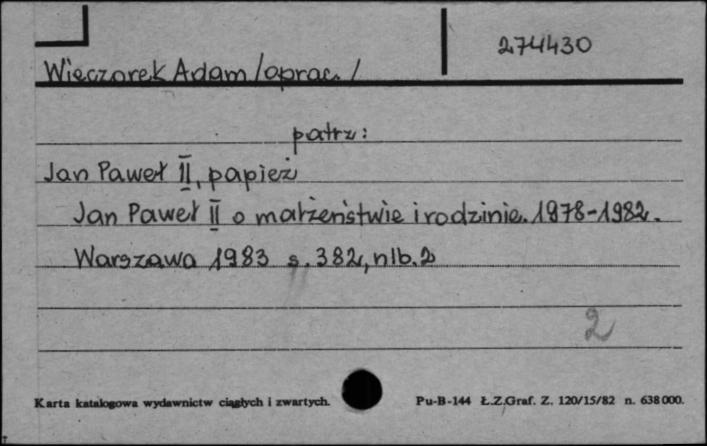 274430
Wieczorek Adam /oprac./
patrz:
Jan Paweł II, papież
Jan Paweł II o małżeństwie i rodzinie. 1978-1982.
Warszawa 1983 s. 382, nlb. 2
2
Karta katalogowa wydawnictw ciągłych i zwartych.
Pu-B-144 Ł.Z.Graf. Z. 120/15/82 n. 638000.